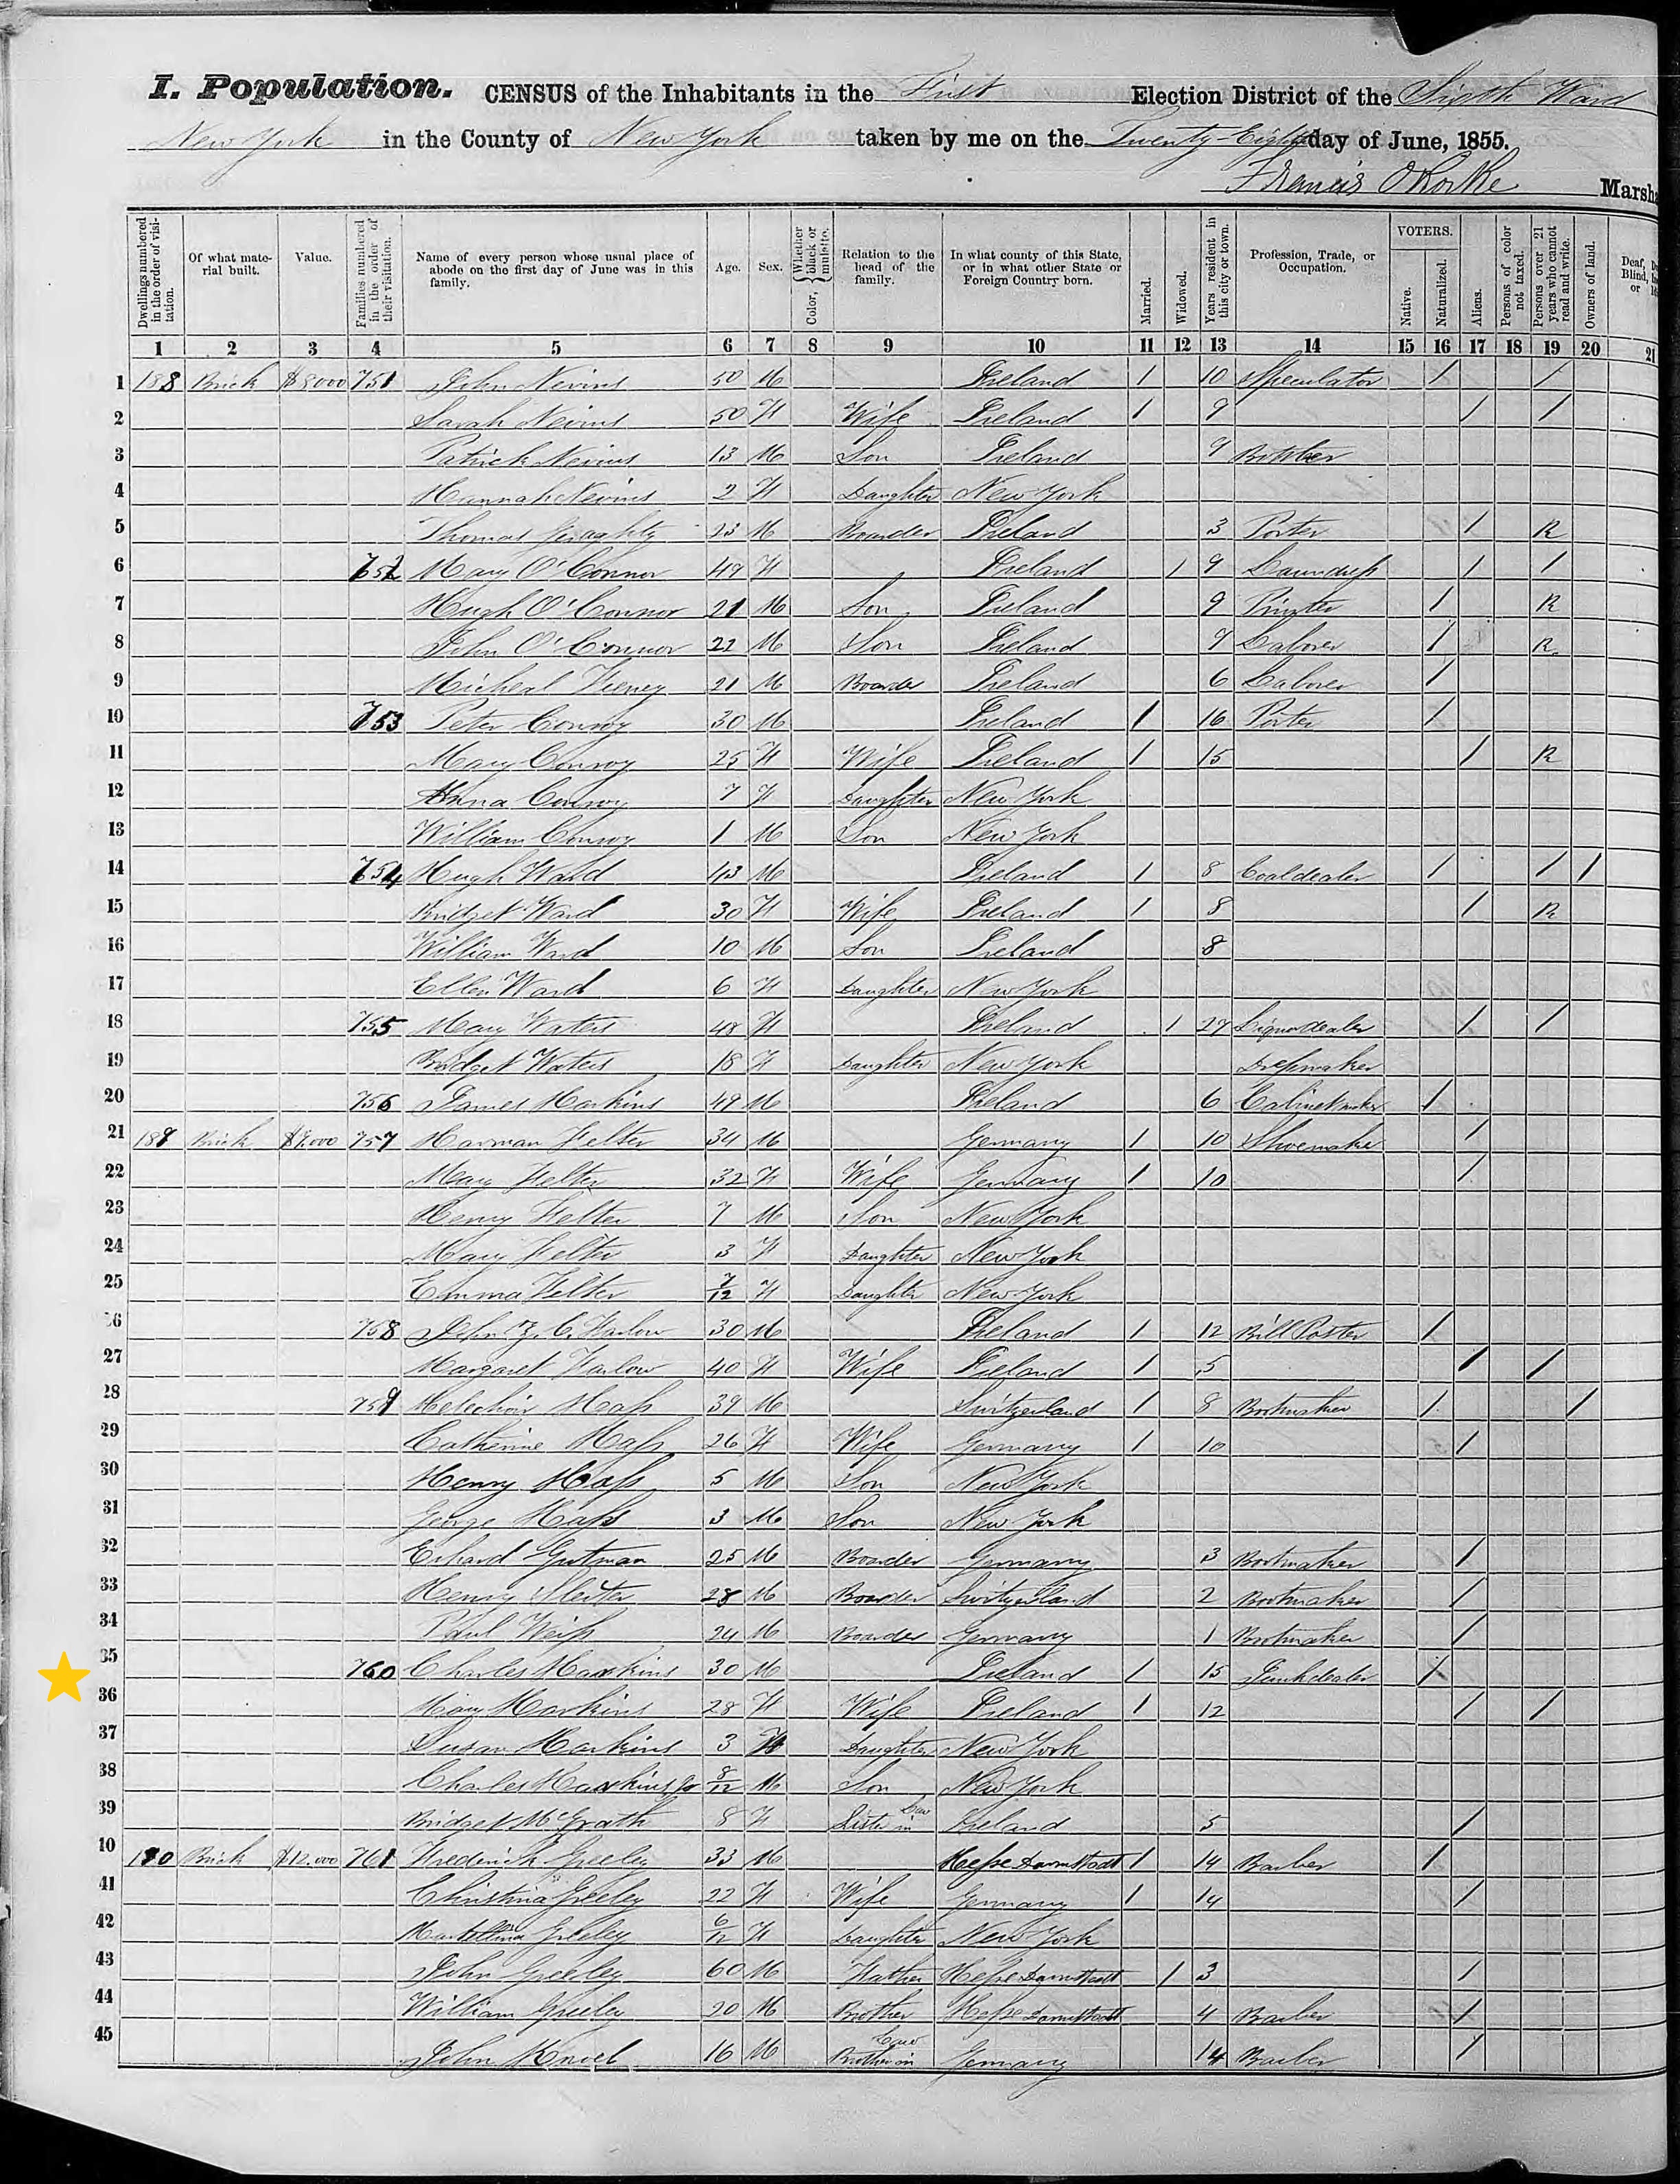 I. Population. CENSUS of the Inhabitants in the First Election District of the Sixth Ward
New York in the County of New York taken by me on the Twenty-Eighth day of June, 1855.
Francis O'Rorke Marsha
Dwellings numbered in the order of visitation. Of what material built. Value. Families numbered in the order of their visitation. Name of every person whose usual place of abode on the first day of June was in this family. Age. Sex. Color, Whether black or mulatto. Relation to the head of the family. In what county of this State, or in what other State or Foreign Country born. Married. Widowed. Years resident in this city or town. Profession, Trade, or Occupation. VOTERS. Native. Naturalized. Aliens. Persons of color not taxed. Persons over 21 years who cannot read and write. Owners of land. Deaf, Blind, or
1 2 3 4 5 6 7 8 9 10 11 12 13 14 15 16 17 18 19 20 21
1 188 Brick $8000 751 John Nevins 50 M Ireland 1 10 Speculator 1 1
2 Sarah Nevins 50 F Wife Ireland 1 9 1 1
3 Patrick Nevins 13 M Son Ireland 9
4 Hannah Nevins 2 F Daughter New York
5 Thomas Geraghty 23 M Boarder Ireland 3 Porter 1 R
6 752 Mary O'Connor 49 F Ireland 1 9 Laundress 1 1
7 Hugh O'Connor 21 M Son Ireland 9 Printer 1 R
8 John O'Connor 22 M Son Ireland 9 Laborer 1 R
9 Micheal 21 M Boarder Ireland 6 Laborer 1
10 753 Peter Conroy 30 M Ireland 1 16 Porter 1
11 Mary Conroy 25 F Wife Ireland 1 15 1 R
12 Anna Conroy 7 F Daughter New York
13 William Conroy 1 M Son New York
14 754 Hugh Ward 43 M Ireland 1 8 Coaldealer 1 1 1
15 Bridget Ward 30 F Wife Ireland 1 8 1 R
16 William Ward 10 M Son Ireland 8
17 Ellen Ward 6 F Daughter New York
18 755 Mary Waters 48 F Ireland 1 27 Liquordealer 1 1
19 Bridget Waters 18 F Daughter New York Dressmaker
20 756 James Harkins 49 M Ireland 6 Cabinetmaker 1
21 189 Brick $9,000 757 Harman Felter 34 M Germany 1 10 Shoemaker 1
22 Mary Felter 32 F Wife Germany 1 10 1
23 Henry Felter 7 M Son New York
24 Mary Felter 3 F Daughter New York
25 Emma Felter 7/12 F Daughter New York
26 758 John Harlow 30 M Ireland 1 12 Bill Poster 1
27 Margaret Harlow 40 F Wife Ireland 1 5 1 1
28 759 Melechior Hass 39 M Switzerland 1 8 Bootmaker 1 1
29 Catherine Hass 26 F Wife Germany 1 10 1
30 Henry Hass 5 M Son New York
31 George Hass 3 M Son New York
32 Erhard Gutman 25 M Boarder Germany 3 Bootmaker 1
33 Henry 28 M Boarder Switzerland 2 Bootmaker 1
34 Paul Weiss 24 M Boarder Germany 1 Bootmaker 1
35 760 Charles Harkins 30 M Ireland 1 15 Junkdealer 1
36 Mary Harkins 28 F Wife Ireland 1 12 1 1
37 Susan Harkins 3 F Daughter New York
38 Charles Harkins Jr 8/12 M Son New York
39 Bridget McGrath 8 F Sister in Law Ireland 5 1
10 190 Brick $12,000 761 Frederick Greeley 33 M Hesse Darmstadt 1 14 Barber 1
41 Christina Greeley 22 F Wife Germany 1 14 1
42 Greeley 6/12 F Daughter New York
43 John Greeley 60 M Father Hesse Darmstadt 1 3 1
44 William Greeley 20 M Brother Hesse Darmstadt 4 Barber 1
45 John 16 M Brother in Law Germany 14 Barber 1